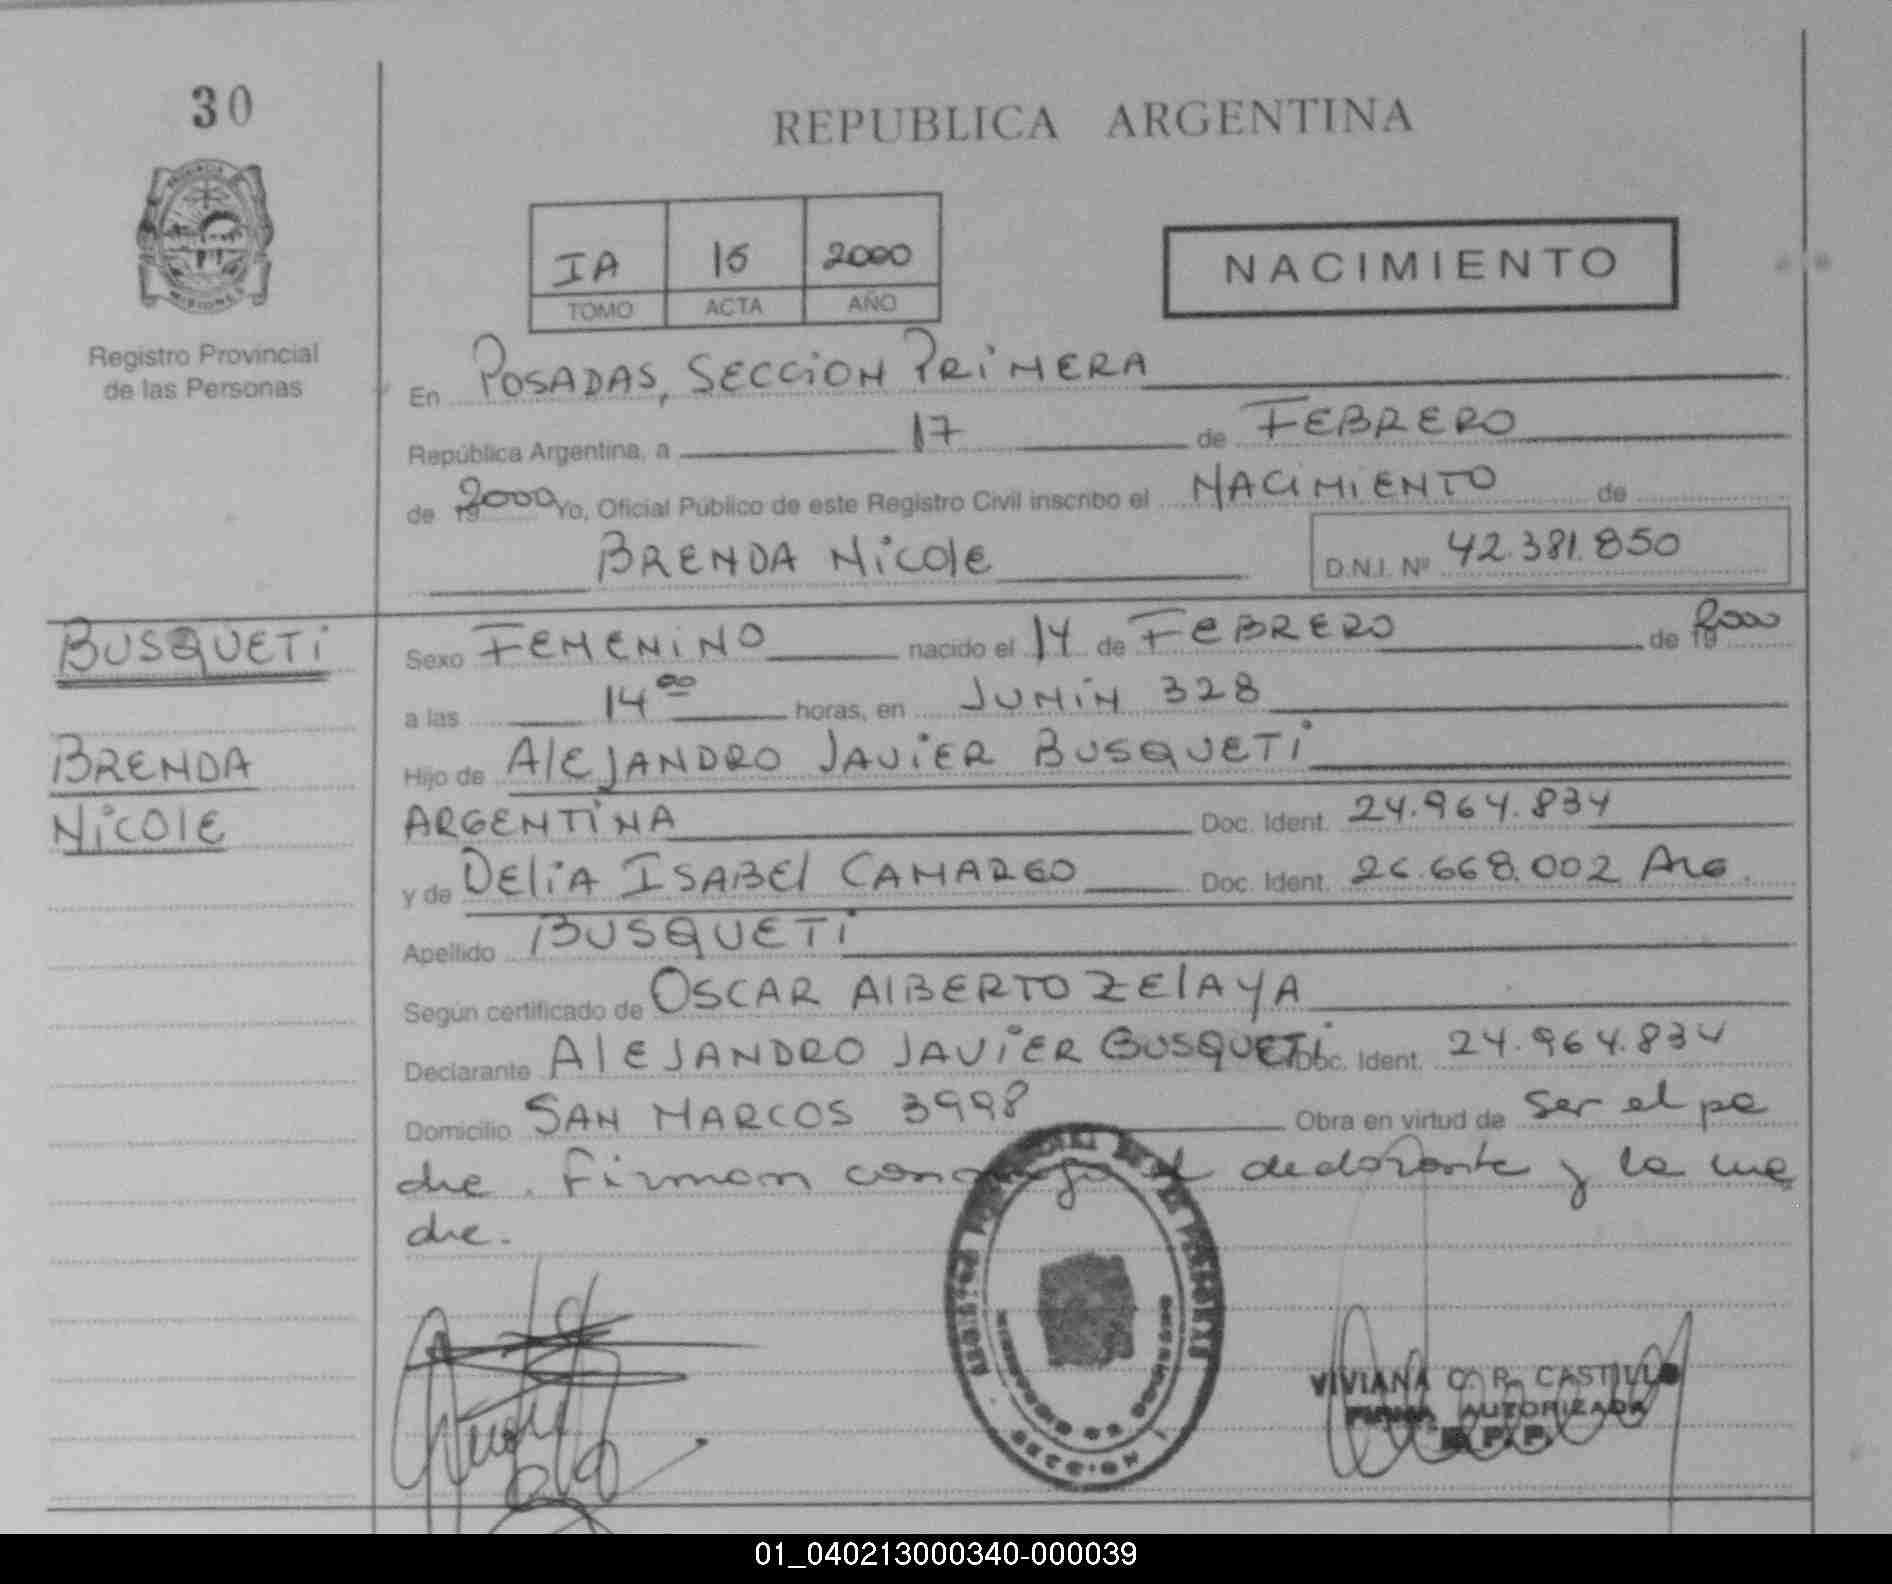 30
REPUBLICA ARGENTINA
PROVINCIA
MISIONES
Registro Provincial
de las Personas
IA 16 2000
TOMO ACTA AÑO
NACIMIENTO
En POSADAS, SECCION PRIMERA
República Argentina, a 17 de FEBRERO
de 19 2000 Yo, Oficial Público de este Registro Civil inscribo el NACIMIENTO de
BRENDA NICOLE D.N.I. Nº 42.381.850
BUSQUETI
BRENDA
NICOLE
Sexo FEMENINO nacido el 14 de FEBRERO de 19 2000
a las 14 00 horas, en JUNIN 328
Hijo de ALEJANDRO JAVIER BUSQUETI
ARGENTINA Doc. Ident. 24.964.834
y de DELIA ISABEL CAMARGO Doc. Ident. 26.668.002 ARG.
Apellido BUSQUETI
Según certificado de OSCAR ALBERTO ZELAYA
Declarante ALEJANDRO JAVIER BUSQUETI Doc. Ident. 24.964.834
Domicilio SAN MARCOS 3998 Obra en virtud de ser el pa
dre. Firman conmigo el declarante y la ma
dre.
VIVIANA C. R. CASTILLO
FIRMA AUTORIZADA
R.P.P.
01_040213000340-000039